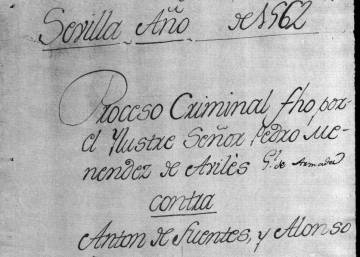 Sevilla Año de 1562
Proceso Criminal fho por
el Ylustre Señor Pedro Me
nendez de Avilès G.l de Armada
contra
Anton de Fuentes, y Alonso